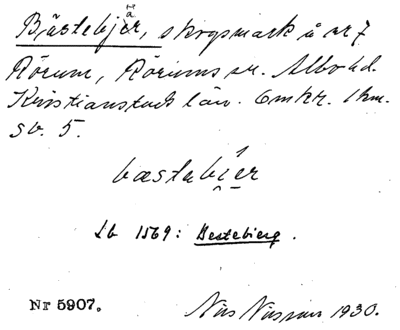 Bjästebjär, skogsmark å nr 7
Rörum, Rörums sn. Albo hd.
Kristianstads län. Omkr. 1 km.
sv. 5.
bæstabier
Lb 1569: Besteberg.
Nr 5907. Nils Nilsson 1930.